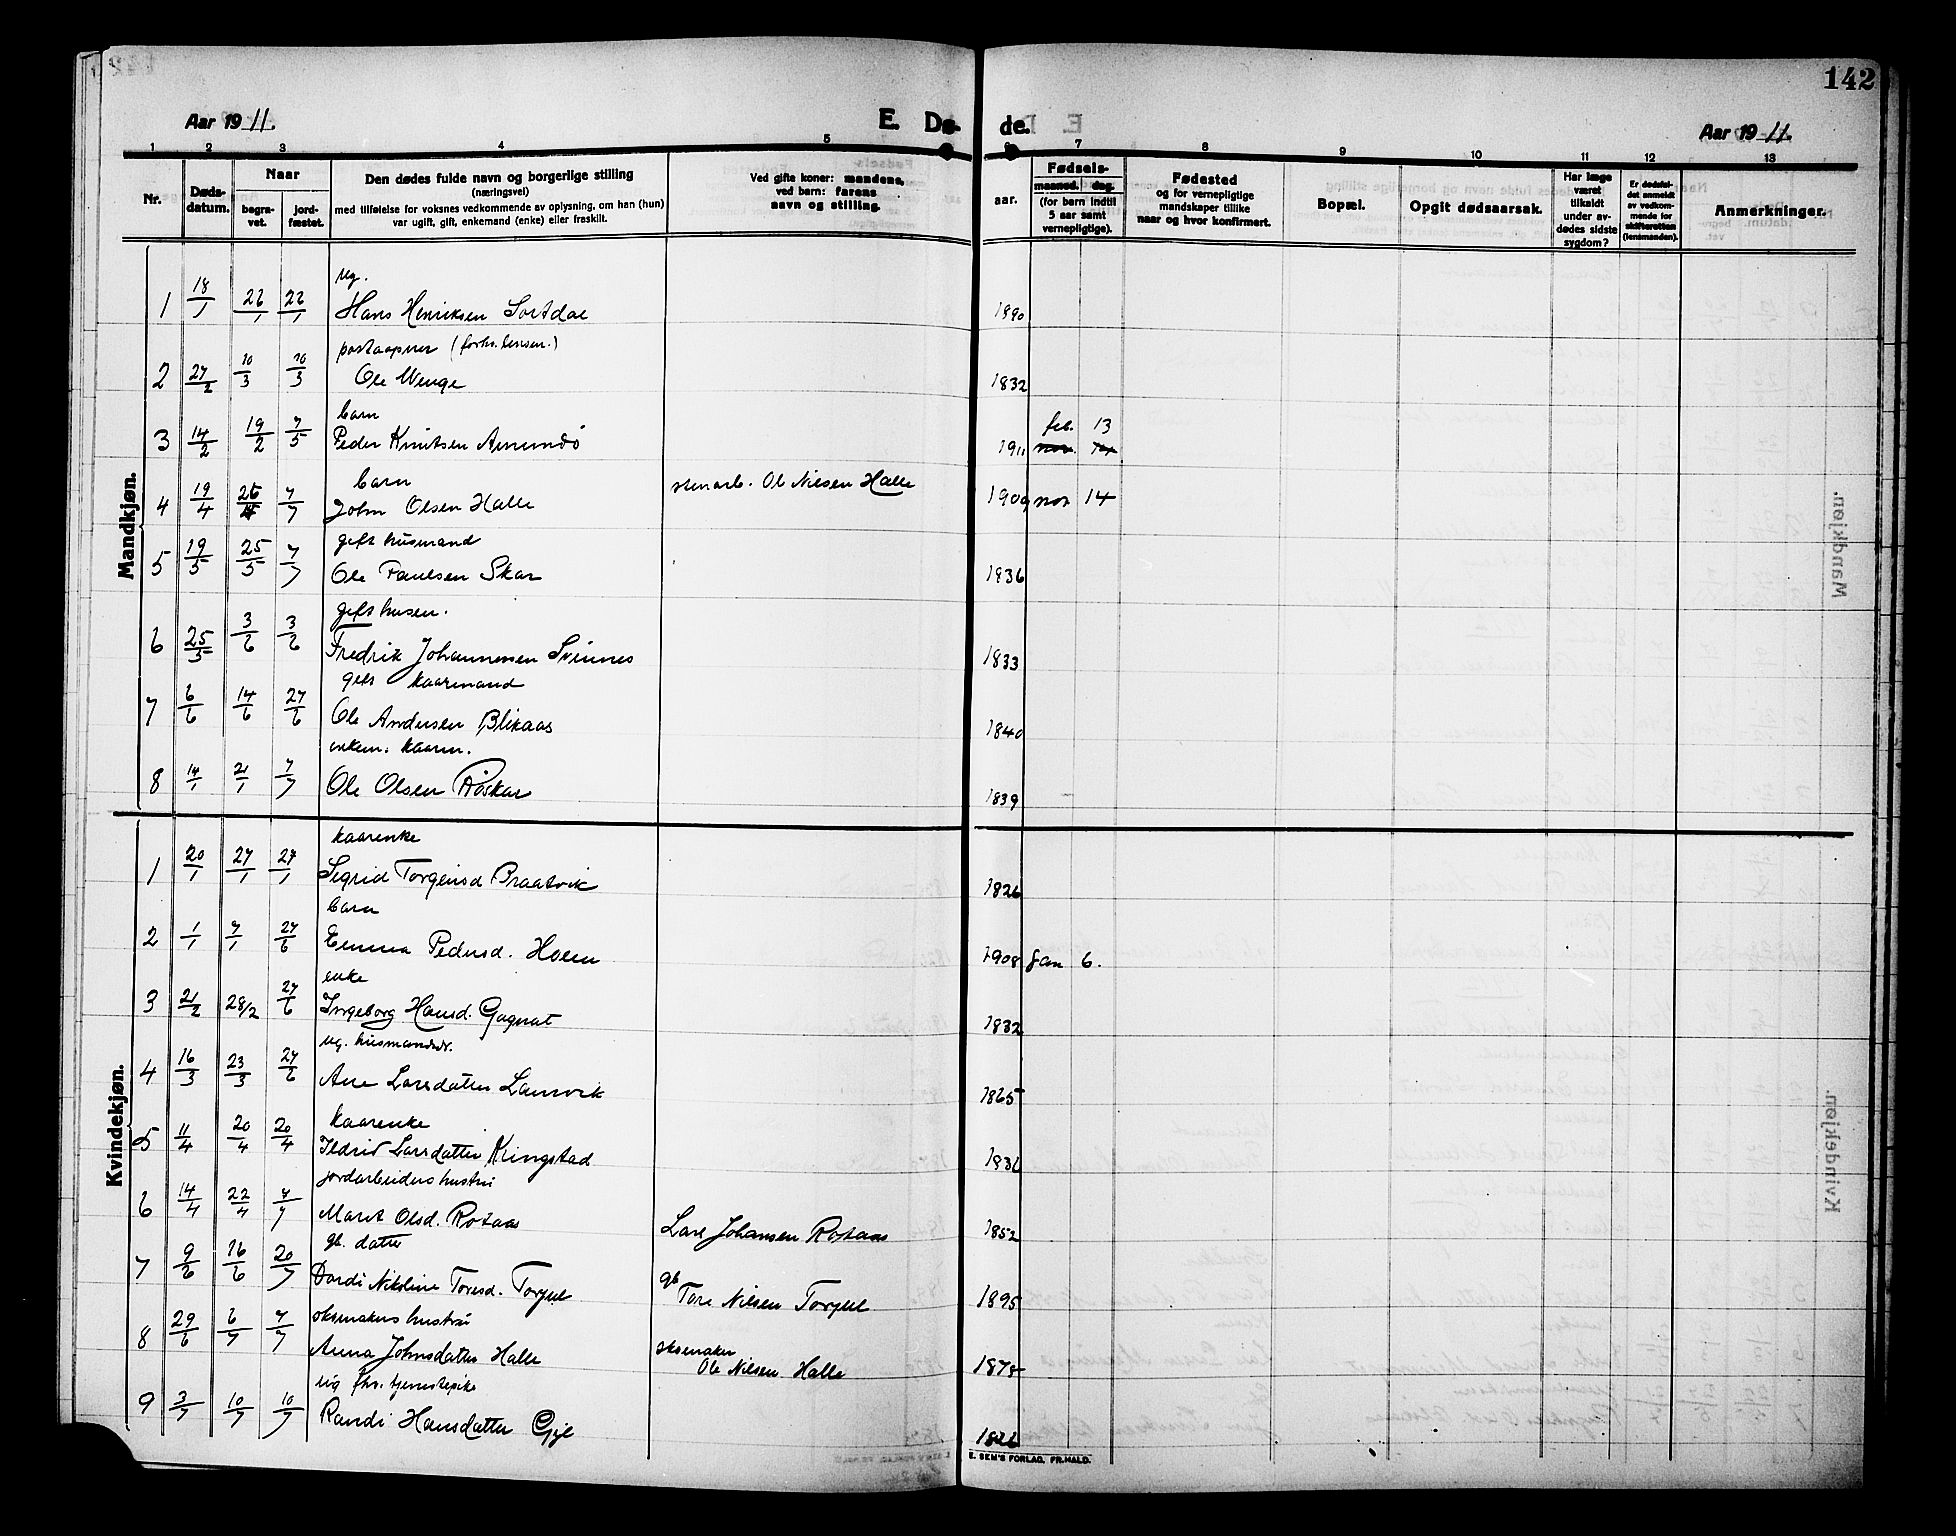 142
Aar 1911.
E. Døde.
Aar 1911.
1 2 3 4 5 6 7 8 9 10 11 12 13
Nr.
Døds-datum.
Naar
begra-vet.
jord-fæstet.
Den dødes fulde navn og borgerlige stilling
(næringsvei)
med tilføielse for voksnes vedkommende av oplysning, om han (hun)
var ugift, gift, enkemand (enke) eller fraskilt.
Ved gifte koner: mandens,
ved børn: farens
navn og stilling.
aar.
Fødsels-
maaned. dag.
(for børn indtil
5 aar samt
vernepligtige).
Fødested
og for vernepligtige
mandskaper tillike
naar og hvor konfirmert.
Bopæl.
Opgit dødsaarsak.
Har læge
været
tilkaldt
under av-
dødes sidste
sygdom?
Er dødsfal-
det anmeldt
av vedkom-
mende for
skifteretten
(lensmanden).
Anmerkninger.
Mandkjøn.
ug.
1 18/1 22/1 22/1 Hans Henriksen Sortdal 1890
postaapner (forhv. lensm.)
2 27/2 10/3 10/3 Ole Wenge 1832
barn
feb. 13
3 14/2 19/2 7/5 Peder Knutsen Amundö 1911
barn
stenarb. Ol Nilsen Halle
4 19/4 7/7 John Olsen Halle 1909 nov 14
gift husmand
5 19/5 25/5 7/7 Ole Paulsen Skar 1836
gift husm.
6 3/6 3/6 Fredrik Johannessen Svinnes 1833
gift kaarmand
7 6/6 14/6 27/6 Ole Andersen Blikaas 1840
enkem. kaarm.
8 14/1 21/1 7/7 Ole Olsen Røskar 1839
Kvindekjøn.
kaarenke
1 20/1 27/1 27/1 Sigrid Torgeirsd Braatvik 1826
barn
2 1/1 7/1 27/6 Emma Pedersd. Hoem 1908 Jan 6.
enke
3 21/2 28/2 27/6 Ingeborg Hansd. Gagnat 1832
ug. husmandsdr.
4 16/3 23/3 27/6 Ane Larsdatter Lauvvik 1865
kaarenke
5 11/4 20/4 20/4 Ildrid Larsdatter Kringstad 1831
jordarbeiders hustru
6 14/4 22/4 7/7 Marit Olsd. Røtaas Lars Johansen Røtaas 1852
gb. datter
gb
7 9/6 16/6 20/7 Dordi Nikoline Toresd. Torjul Tore Nilsen Torjul 1895
skomakers hustru
skomaker
8 29/6 6/7 7/7 Anna Johnsdatter Halle Ole Nilsen Halle 1878
ug fhv. tjenestepike
9 3/7 10/7 10/7 Randi Hansdatter Gjøl 1826
E. SEM'S FORLAG, FR.HALD.